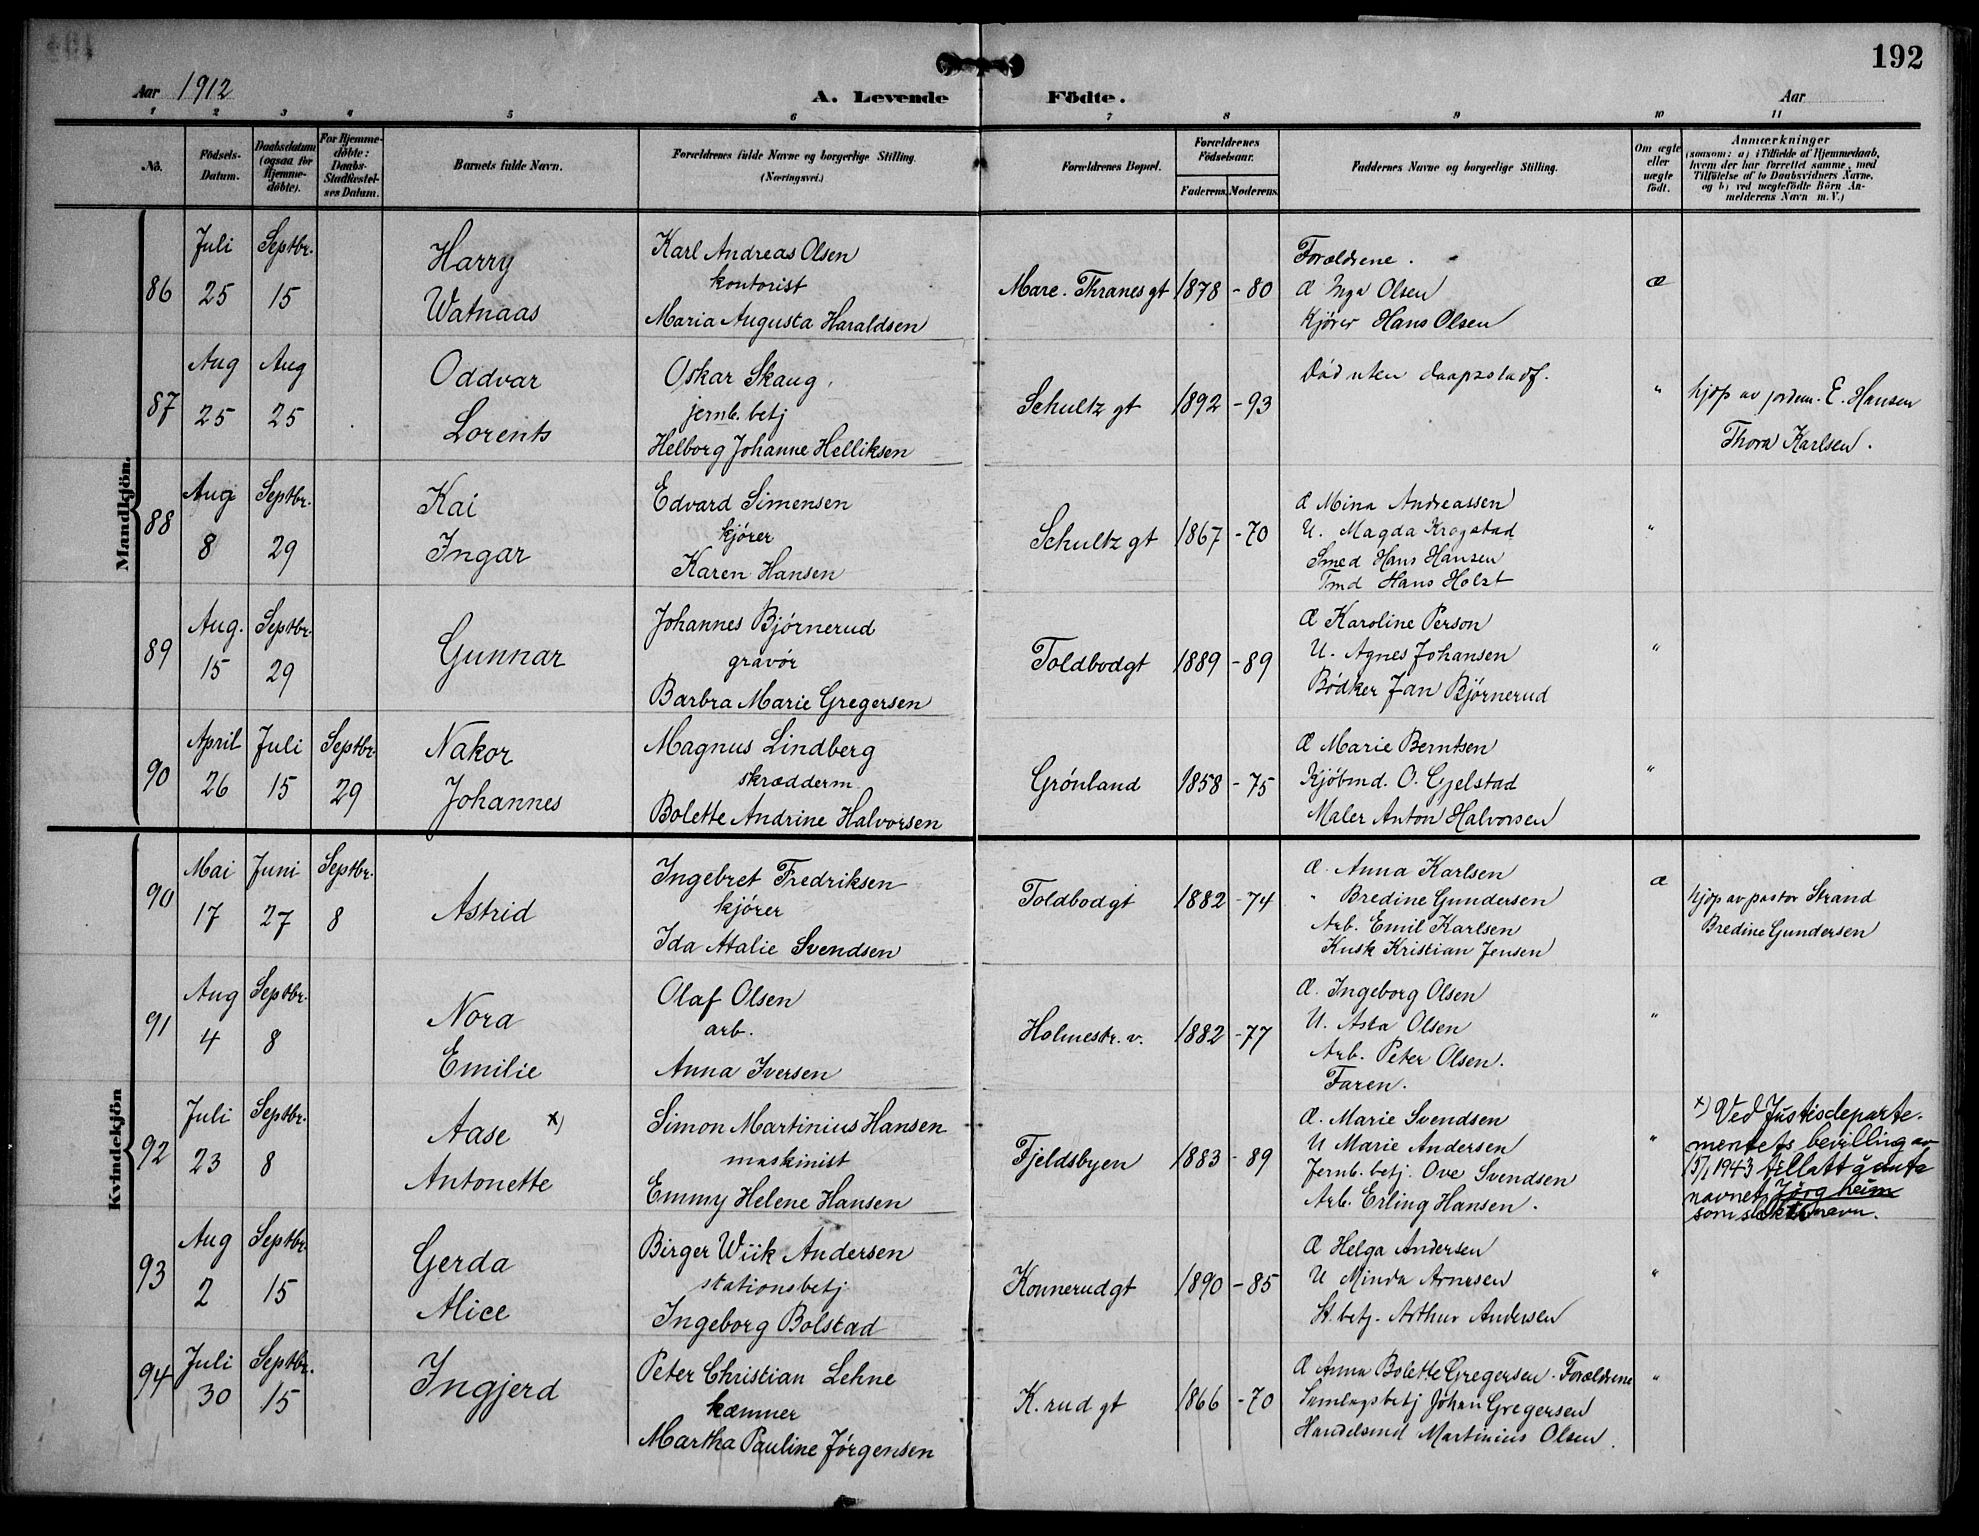 192
Aar 1912
A. Levende Födte.
Aar
1 2 3 4 5 6 7 8 9 10 11
No.
Födsels-
Datum.
Daabsdatum
(ogsaa for
Hjemme-
döbte).
For Hjemme-
döbte:
Daabs-
Stadfæstel-
ses Datum.
Barnets fulde Navn.
Forældrenes fulde Navne og borgerlige Stilling.
(Næringsvei.)
Forældrenes Bopæl.
Forældrenes
Födselsaar.
Faderens. Moderens.
Faddernes Navne og borgerlige Stilling.
Om ægte
eller
uægte
födt.
Anmærkninger
(saasom: a) i Tilfælde af Hjemmedaab,
hvem der har forrettet samme, med
Tilföielse af to Daabsvidners Navne,
og b) ved uægtefödte Börn An-
melderens Navn m. V.)
Mandkjön.
86
Juli
25
Septbr.
15
Harry
Watnaas
Karl Andreas Olsen
kontorist
Maria Augusta Haraldsen
Marc. Thranes gt
1878 - 80
Forældrene.
Æ Inga Olsen
Kjører Hans Olsen
Æ
87
Aug
25
Aug
25
Oddvar
Lorents
Oskar Skaug
jernb. betj
Helborg Johanne Helliksen
Schultz gt
1892 - 93
Død uten daapsstadf.
"
hjdp av jordm. E. Hansen
Thora Karlsen.
88
Aug
8
Septbr.
29
Kai
Ingar
Edvard Simensen
kjører
Karen Hansen
Schultz gt
1867 - 70
Æ Mina Andreassen
U. Magda Krogstad
Smed Hans Hansen
Tmd Hans Holst
"
89
Aug.
15
Septbr.
29
Gunnar
Johannes Bjørnerud
gravør
Barbra Marie Gregersen
Toldbodgt
1889 - 89
Æ Karoline Person
U. Agnes Johansen
Bødker Jan Bjørnerud
"
90
April
26
Juli
15
Septbr.
29
Nakor
Johannes
Magnus Lindberg
skrædderm
Bolette Andrine Halvorsen
Grønland
1858 - 75
Æ Marie Berntsen
Kjøbmd. O. Gjelstad
Maler Anton Halvorsen
"
Kvindekjön
90
Mai
17
Juni
27
Septbr.
8
Astrid
Ingebret Fredriksen
kjører
Ida Atalie Svendsen
Toldbodgt
1882 - 74
Æ. Anna Karlsen
" Bredine Gundersen
Arb. Emil Karlsen
Kusk Kristian Jensen
Æ
hjdp av pastor Strand
Bredine Gundersen
91
Aug
4
Septbr.
8
Nora
Emilie
Olaf Olsen
arb.
Anna Iversen
Holmestr. v.
1882 - 77
Æ. Ingeborg Olsen
U. Asta Olsen
Arb. Peter Olsen.
Faren.
"
92
Juli
23
Septbr.
8
Aase x)
Antonette
Simon Martinius Hansen
maskinist
Emmy Helene Hansen
Fjeldsbyen
1883 - 89
Æ. Marie Svendsen
U Marie Andersen
Jernb. betj. Ove Svendsen
Arb. Erling Hansen.
"
x) Ved Justisdeparte-
mentets bevilling av
15/1 1943 tillatt å anta
navnet Jörgheim
som slektsnavn.
93
Aug
2
Septbr.
15
Gerda
Alice
Birger Wiik Andersen
stationsbetj
Ingeborg Bolstad
Konnerudgt
1890 - 85
Æ Helga Andersen
U Minda Arnesen
St. betj. Arthur Andersen
"
94
Juli
30
Septbr.
15
Ingjerd
Peter Christian Lehne
kæmner
Martha Pauline Jørgensen
K. rud gt
1866 - 70
Æ Anna Bolette Gregersen. Forældrene
Samlagsbetj Johan Gregersen
Handelsmd Martinius Olsen.
"